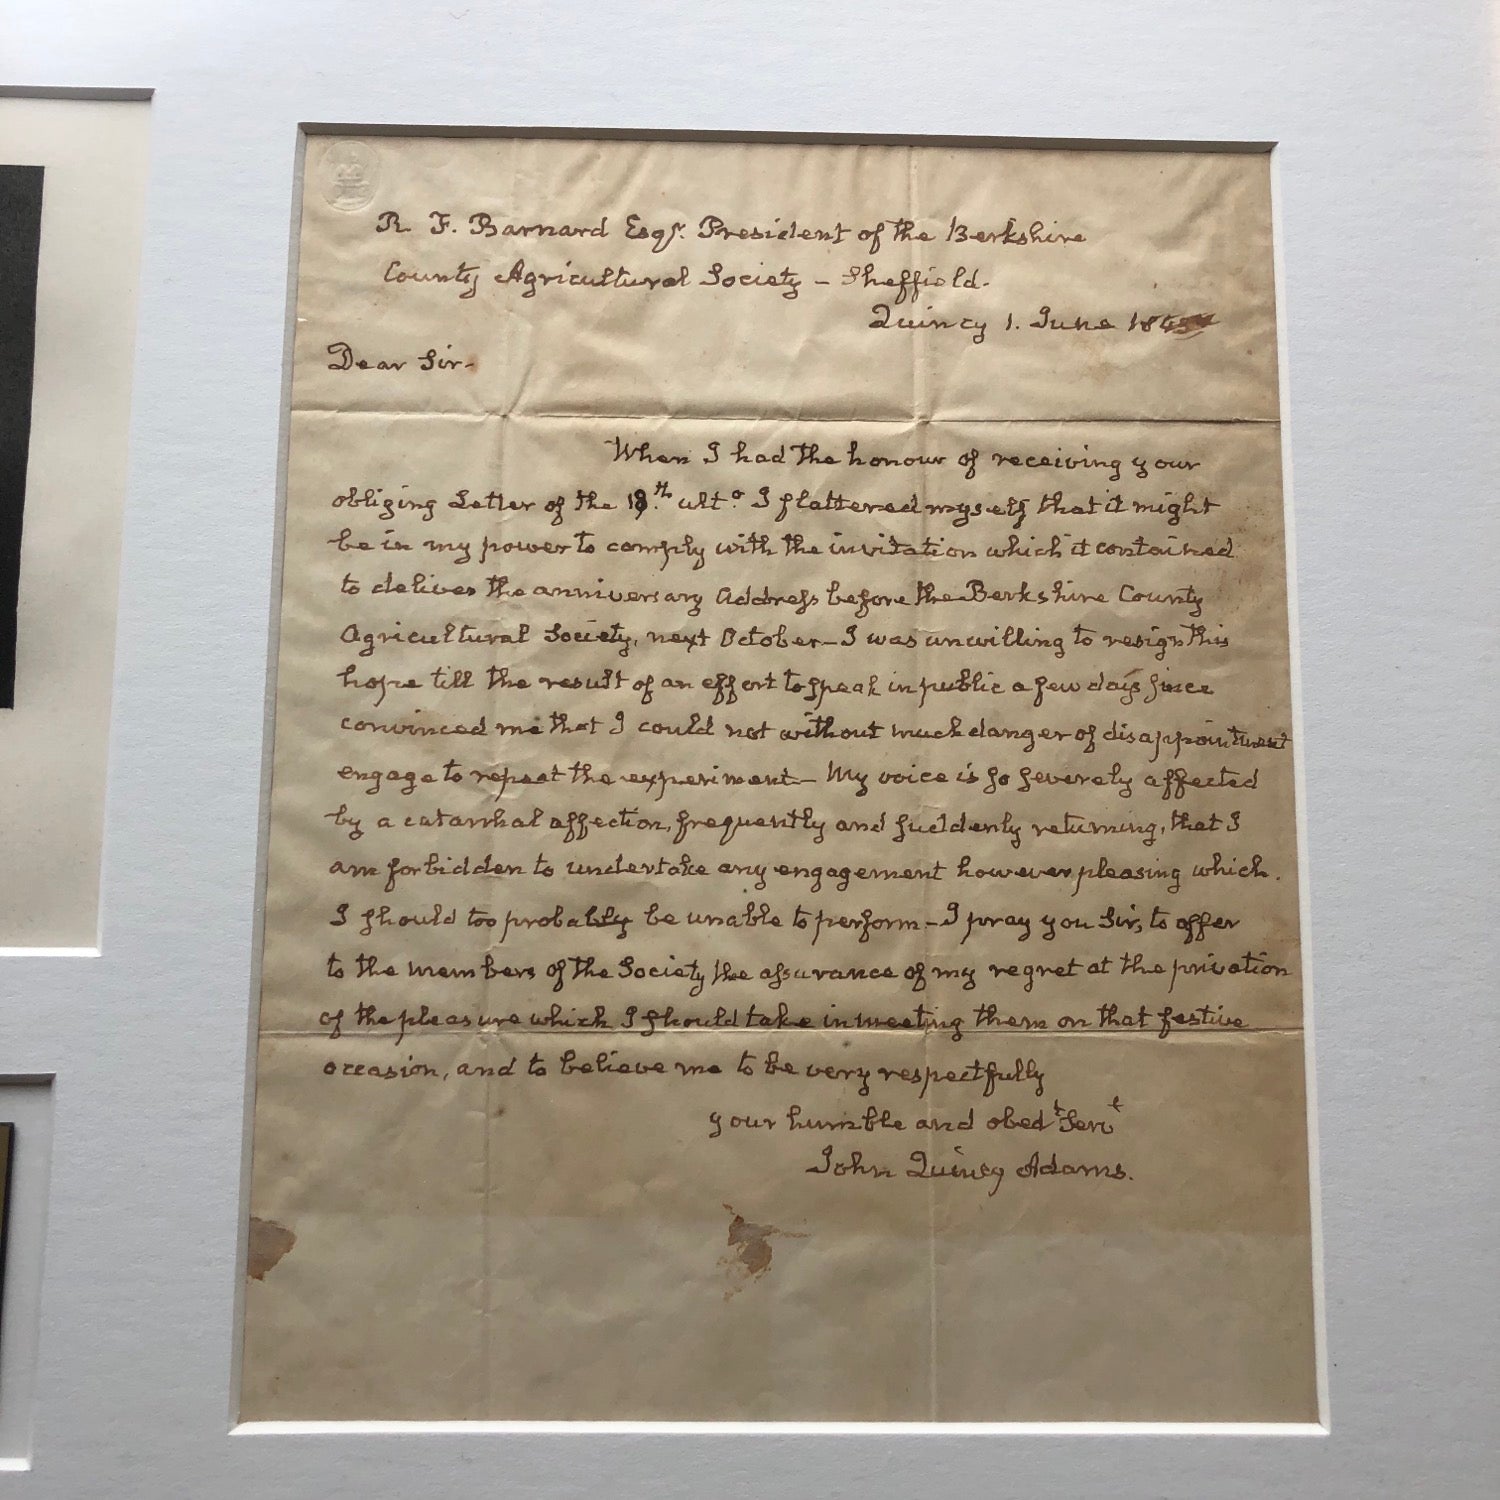 R. F. Barnard Esqr. President of the Berkshire
County Agricultural Society – Sheffield.
Quincy 1. June
Dear Sir–
When I had the honour of receiving your
obliging Letter of the 18th. ulto. I flattered myself that it might
be in my power to comply with the invitation which it contained
to deliver the anniversary Address before the Berkshire County
Agricultural Society, next October – I was unwilling to resign this
hope till the result of an effort to speak in public a few days since
convinced me that I could not without much danger of disappointment
engage to repeat the experiment – My voice is so severely affected
by a catarrhal affection, frequently and suddenly returning, that I
am forbidden to undertake any engagement however pleasing which
I should too probably be unable to perform – I pray you Sir, to offer
to the members of the Society the assurance of my regret at the privation
of the pleasure which I should take in meeting them on that festive
occasion, and to believe me to be very respectfully
your humble and obedt Servt
John Quincy Adams.